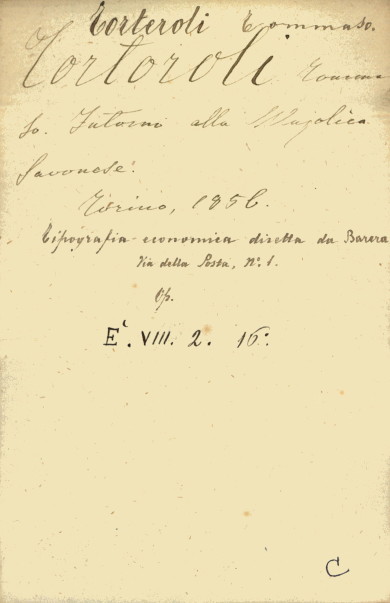 Torteroli Tommaso.
Tortoroli Tomma
so. Intorno alla Majolica
Savonese.
Torino, 1856.
Tipografia economica diretta da Barera
Via della Posta, N°. 1.
Op.
E'. VIII. 2. 16.
C